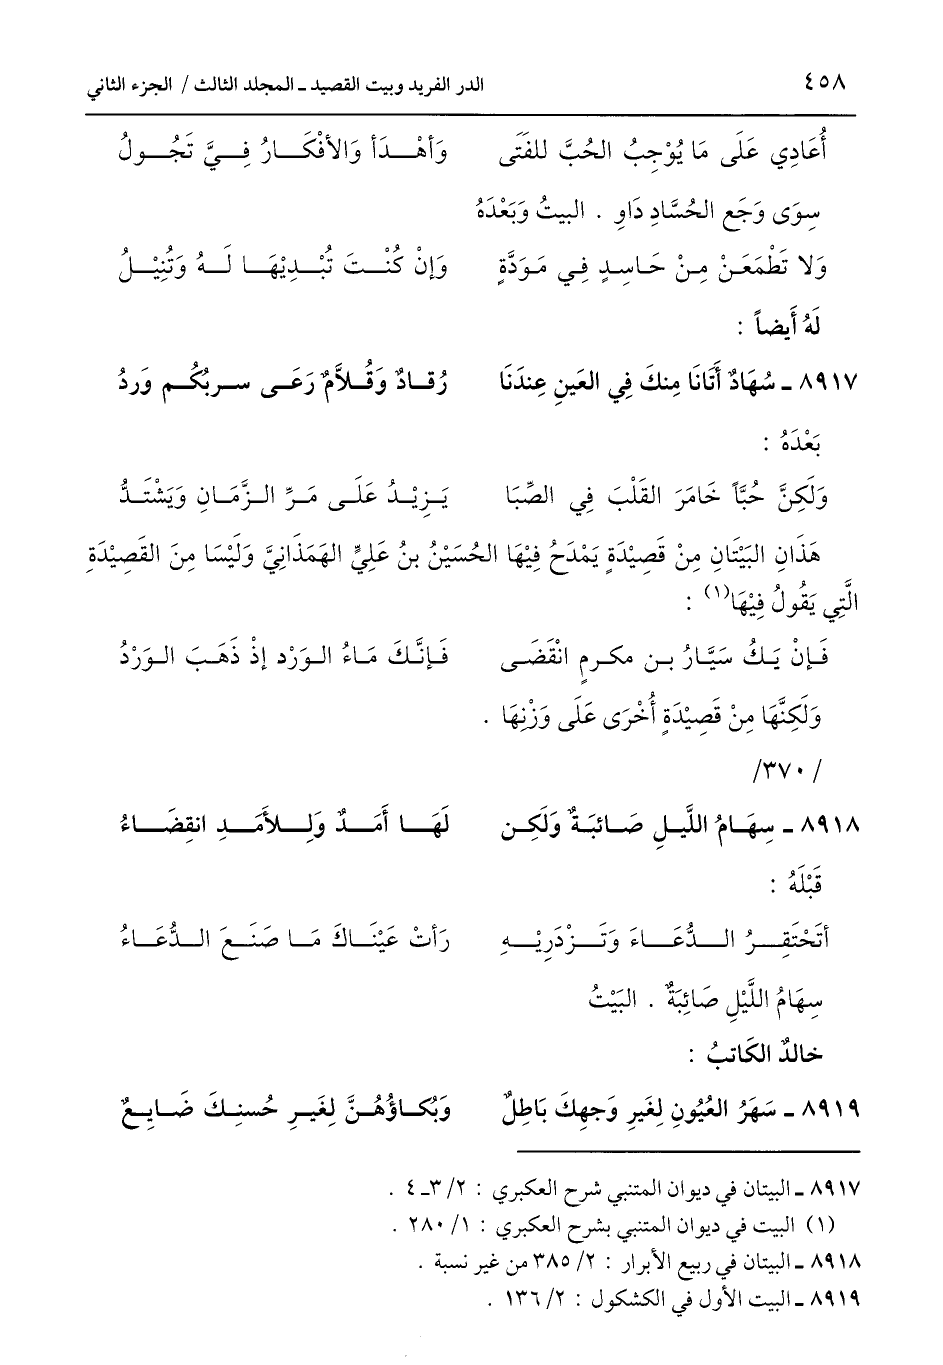 ٤٥٨ الدر الفريد وبيت القصيد ـ المجلد الثالث / الجزء الثاني
أُعَادِي عَلَى مَا يُوْجِبُ الحُبَّ للفَتَى وَأهْدَأ وَالأفْكَارُ فِيَّ تَجُولُ
سِوَى وَجَعِ الحُسَّادِ دَاوِ . البيتُ وَبَعْدَهُ
وَلا تَطْمَعَنْ مِنْ حَاسِدٍ فِي مَوَدَّةٍ وَإنْ كُنْتَ تُبْدِيْهَا لَهُ وَتُنِيْلُ
لَهُ أَيضاً :
٨٩١٧ ـ سُهَادٌ أَتَانَا مِنكَ فِي العَينِ عِندَنَا رُقَادٌ وَقُلاَّمٌ رَعَى سربُكُم وَردُ
بَعْدَهُ :
وَلَكِنَّ حُبَّاً خَامَرَ القَلْبَ فِي الصِّبَا يَزِيْدُ عَلَى مَرِّ الزَّمَانِ وَيَشْتَدُّ
هَذَانِ البَيْتَانِ مِنْ قَصِيْدَةٍ يَمْدَحُ فِيْهَا الحُسَيْنُ بنُ عَلِيٍّ الهَمَذَانِيَّ وَلَيْسَا مِنَ القَصِيْدَةِ
الَّتِي يَقُولُ فِيْهَا(١) :
فَإنْ يَكُ سَيَّارُ بن مكرمٍ انْقَضَى فَإنَّكَ مَاءُ الوَرْدِ إذْ ذَهَبَ الوَرْدُ
وَلَكِنَّهَا مِنْ قَصِيْدَةٍ أُخْرَى عَلَى وَزْنِهَا .
/٣٧٠/
٨٩١٨ ـ سِهَامُ اللَّيلِ صَائبَةٌ وَلَكِن لَهَا أَمَدٌ وَلِلأَمَدِ انقِضَاءُ
قَبْلَهُ :
أتَحْتَقِرُ الدُّعَاءَ وَتَزْدَرِيْهِ رَأتْ عَيْنَاكَ مَا صَنَعَ الدُّعَاءُ
سِهَامُ اللَّيْلِ صَائِبَةٌ . البَيْتُ
خالدٌ الكَاتبُ :
٨٩١٩ ـ سَهَرُ العُيُونِ لِغَيرِ وَجهِكَ بَاطِلٌ وَبُكاؤُهُنَّ لِغَيرِ حُسنِكَ ضَايِعٌ
٨٩١٧ ـ البيتان في ديوان المتنبي شرح العكبري : ٢/ ٣ـ ٤ .
(١) البيت في ديوان المتنبي بشرح العكبري : ١/ ٢٨٠ .
٨٩١٨ ـ البيتان في ربيع الأبرار : ٢/ ٣٨٥ من غير نسبة .
٨٩١٩ ـ البيت الأول في الكشكول : ٢/ ١٣٦ .